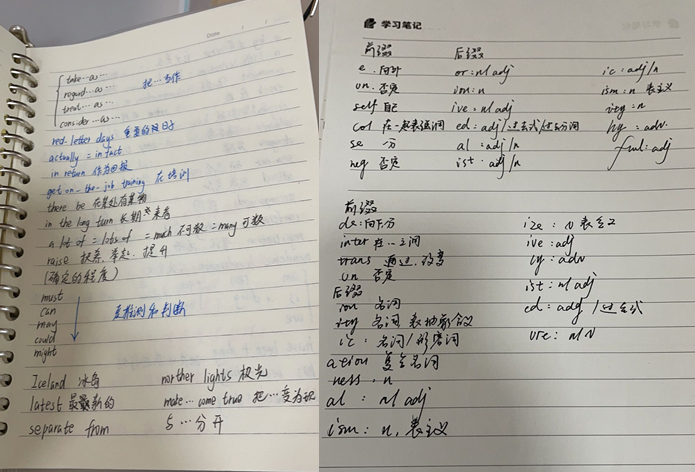 Date
take…as…
regard…as… 把…当作
treat…as…
consider…as…
red-letter days 重要的日子
actually = in fact
in return 作为回报
get on-the-job training 在培训
there be 在某处有某物
in the long turn 长期
a lot of = lots of = much 不可数 = many 可数
raise 抚养, 举起, 提升
(确定的程度)
must
can
may 表推测和判断
could
might
Iceland 冰岛 norther lights 极光
latest 最新的 make…come true 把…变为现
separate from 与…分开
学习笔记
前缀 后缀
e. 向外 or: n/adj ic: adj/n
un. 否定 ion: n ism: n 表主义
self 自己 ive: n/adj ity: n
col 在一起表强调 ed: adj/过去式/过去分词 ly: adv.
se 分 al: adj/n ful: adj
neg 否定 ist: adj/n
前缀
de: 向下/分 ize: v 表意义
inter 在…之间 ive: adj
trans 通过, 改变 ly: adv
un 否定 ist: n/adj
后缀 ed: adj/过去式
ion 名词 ure: n/v
ity 名词 表抽象含义
ic: 名词/形容词
ation 复合名词
ness: n
al: n/adj
ism: n, 表主义